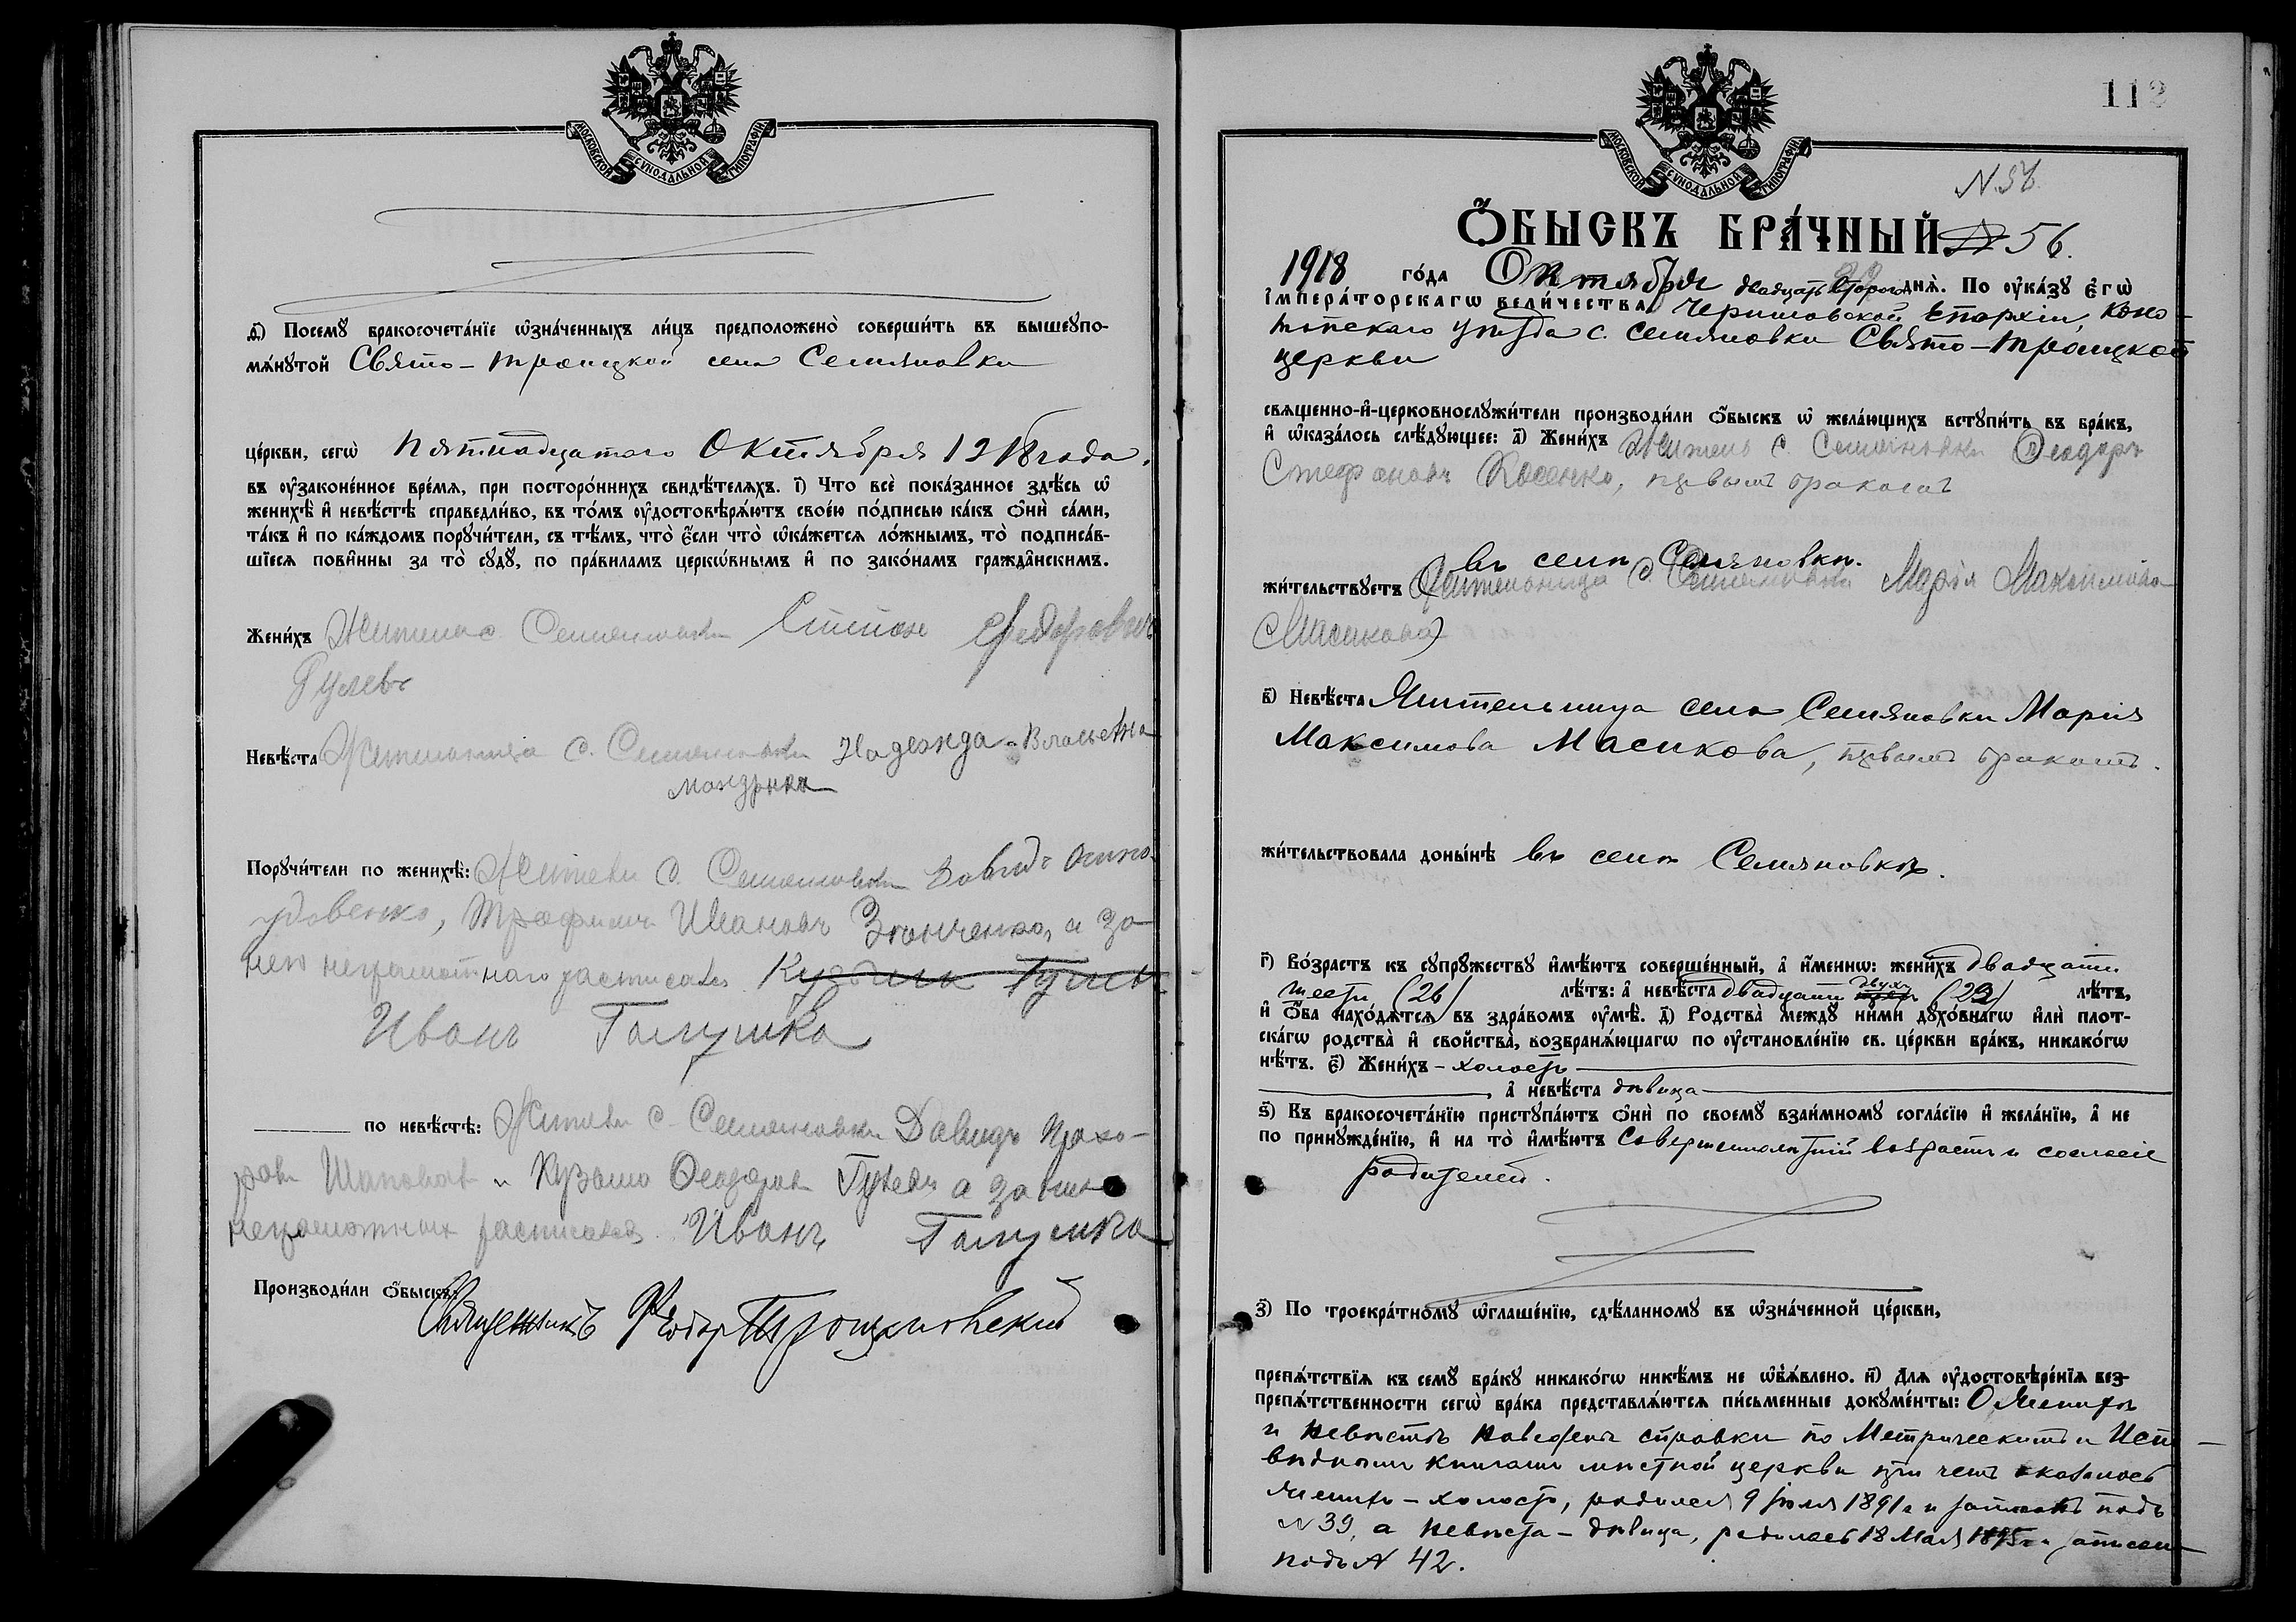 МОСКОВСКОЙ СѴНОДАЛЬНОЙ ТИПОГРАФІИ
д҃) Посемꙋ̀ бракосочета́нїе ѡ҆зна́ченныхъ ли́цъ предположено̀ соверши́ть въ вышеꙋпо-
мѧ́нꙋтой Свято-Троицкой села Семяновки
це́ркви, сегѡ̀ пятнадцатого Октября 1918 года.
въ ᲂу҆законе́нное вре́мѧ, при посторо́ннихъ свидѣ́телѧхъ. і҃) Что всѐ пока́занное здѣ́сь ѡ҆
женихѣ̀ и҆ невѣ́стѣ справедли́во, въ то́мъ ᲂу҆достовѣрѧ́ютъ свое́ю по́дписью ка́къ ѻ҆нѝ са́ми,
та́къ и҆ по ка́ждомъ порꙋчи́тели, съ тѣ́мъ, что̀ є҆́сли что̀ ѡ҆ка́жетсѧ ло́жнымъ, то̀ подписа́в-
шїесѧ пови́нны за то̀ сꙋдꙋ̀, по пра́виламъ церкѡ́внымъ и҆ по зако́намъ гражда́нскимъ.
Жени́хъ Житель с. Семяновки Стипон Федоровичъ
Гулевъ
Невѣ́ста Жительница с. Семяновки Надежда Власьевна
Порꙋчи́тели по женихѣ̀: Жители с. Семяновки Давидъ
Удовенко, Трофимъ Ивановъ Зганченко, а за
него неграмотного росписался Кузьма Гулевъ
Иванъ Галушка
по невѣ́стѣ: Жители с. Семяновки Давидъ Прохо-
ровъ Шаповал и Кузьма Феодоров Гулевъ а за них
неграмотных расписался Иванъ Галушка
Производи́ли ѻ҆́быскъ: Священникъ Феодор Троцкиовский
112
МОСКОВСКОЙ СѴНОДАЛЬНОЙ ТИПОГРАФІИ
N. 56.
Ѻ҆́БЫСКЪ БРА́ЧНЫЙ № 56.
1918 го́да Октября двадцать второго днѧ̀. По ᲂу҆ка́зꙋ є҆гѡ̀
і҆мпера́торскагѡ вели́чества, Черниговской Епархіи, Коно-
топского уѣзда с. Семяновки Свято-Троицкой
церкви
свѧще́нно-и҆-церковнослꙋжи́тели производи́ли ѻ҆́быскъ ѡ҆ жела́ющихъ встꙋпи́ть въ бра́къ,
и҆ ѡ҆каза́лось слѣ́дꙋющее: а҃) Жени́хъ Житель с. Семяновки Феодоръ
Стефановъ Косенко, первымъ бракомъ
въ селѣ Семяновкѣ.
жи́тельствꙋетъ Жительница с. Семяновки Марія Максимова
(Масикова)
в҃) Невѣ́ста Жительница села Семяновки Марія
Максимова Масикова, первымъ бракомъ.
жи́тельствовала доны́нѣ въ селѣ Семяновкѣ.
г҃) Во́зрастъ къ сꙋпрꙋ́жествꙋ и҆мѣ́ютъ соверше́нный, а҆ и҆́меннѡ: жени́хъ двадцати
шести (26) лѣ́тъ: а҆ невѣ́ста двадцати двухъ (22) лѣ́тъ,
и҆ ѻ҆́ба нахо́дѧтсѧ въ здра́вомъ ᲂу҆мѣ̀. д҃) Родства̀ междꙋ̀ ни́ми дꙋхо́внагѡ и҆лѝ пло́т-
скагѡ родства̀ и҆ сво́йства, возбранѧ́ющагѡ по ᲂу҆становле́нїю св. це́ркви бра́къ, никако́гѡ
нѣ́тъ. є҃) Жени́хъ - холостъ
, а҆ невѣ́ста дѣвица
ѕ҃) Къ бракосочета́нїю пристꙋпа́ютъ ѻ҆нѝ по своемꙋ̀ взаи́мномꙋ согла́сїю и҆ жела́нїю, а҆ не
по принꙋжде́нїю, и҆ на то̀ и҆мѣ́ютъ Совершеннолѣтній возрастъ и согласіе
родителей.
з҃) По троекра́тномꙋ ѡ҆глаше́нїю, сдѣ́ланномꙋ въ ѡ҆зна́ченной це́ркви,
препѧ́тствїѧ къ семꙋ̀ бра́кꙋ никако́гѡ никѣ́мъ не ѡ҆б̾ѧ́влено. и҃) Для ᲂу҆достовѣре́нїѧ без-
препѧ́тственности сегѡ̀ бра́ка представлѧ́ютсѧ пи́сьменные докꙋме́нты: О Женихѣ
и невѣстѣ наведены справки по Метрическимъ и Испо-
вѣднымъ книгамъ мѣстной церкви при чемъ оказалось
женихъ - холостъ, родился 9 Іюля 1891 г и записанъ подъ
№ 39, а невѣста - дѣвица, родилась 18 Мая 1895 г. записана
подъ № 42.